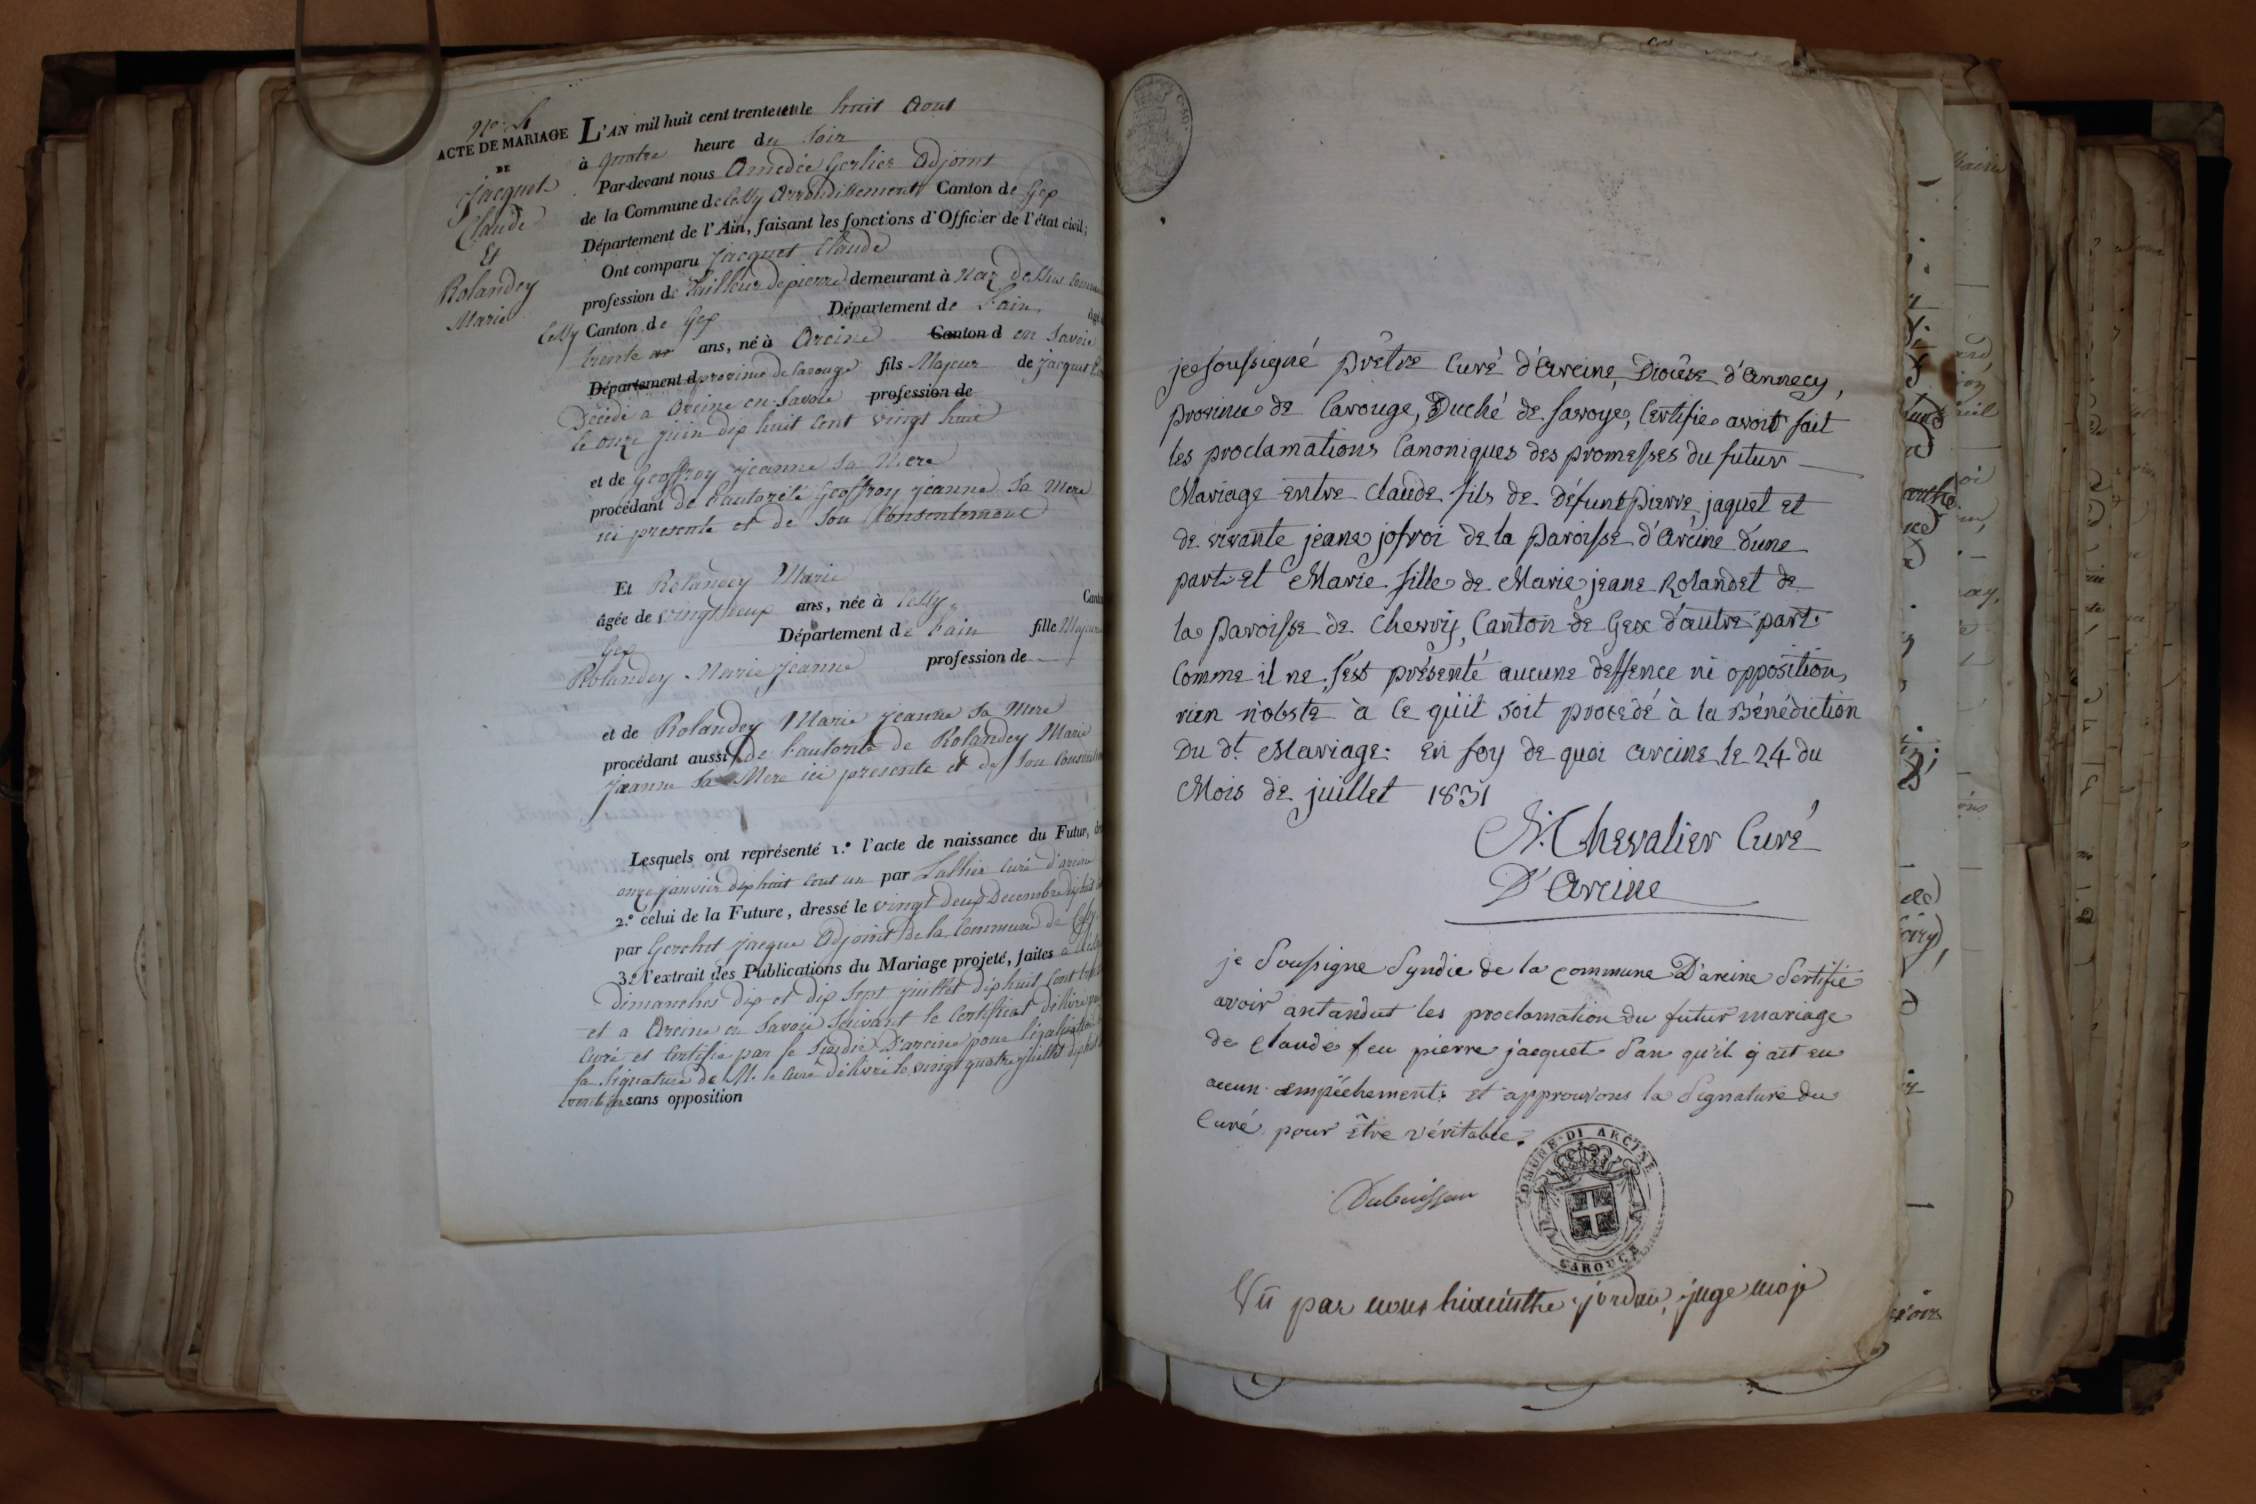 No. 4
ACTE DE MARIAGE
DE
Jacquet
Claude
Et
Rolandey
Marie
L'AN mil huit cent trente et un le huit Aout
à quatre heure du Soir
Par-devant nous Amedée Gerlier Adjoint
de la Commune de Cessy Arrondissement Canton de Gex
Département de l'Ain, faisant les fonctions d'Officier de l'état civil;
Ont comparu Jacquet Claude
profession de Tailleur de pierre demeurant à Naz Dessus
Cessy Canton de Gex Département de l'ain,
trente ans, né à Arcine Canton d en Savoie
Département d province de Carouge fils Majeur de Jacquet
Décédé a Arcine en Savoie profession de
le onze juin dix huit cent vingt huit
et de Geoffroy jeanne Sa Mere
procédant de l'autorité Geoffroy jeanne Sa Mere
ici presente et de Son Consentement
Et Rolandey Marie
âgée de vingt deux ans, née à Cessy
Gex Département de l'ain fille Majeure
Rolandey Marie jeanne profession de
et de Rolandey Marie jeanne Sa Mere
procédant aussi de l'autorité de Rolandey Marie
jeanne Sa Mere ici presente et de Son
Lesquels ont représenté 1.° l'acte de naissance du Futur,
onze janvier dix huit cent un par curé d'arcine
2.° celui de la Future, dressé le vingt deux Decembre
par Gerchet jacque Adjoint de la Commune de Cessy
3.° l'extrait des Publications du Mariage projeté, faites a
Dimanches dix et dix sept juillet dix huit cent
et a Arcine en Savoie Suivant le Certificat délivré
Curé et Certifié par le Sindic D'arcine pour légalisation
la Signature de M. le Curé délivré le vingt quatre juillet
sans opposition
je soussigné prêtre Curé d'Arcine, Diocèse d'Annecy,
province de Carouge, Duché de Savoye, Certifie avoir fait
les proclamations Canoniques des promesses du futur
Mariage entre Claude fils de défunt pierre jaquet et
de vivante jeane jofroi de la paroisse d'Arcine d'une
part et Marie fille de Marie jeane Rolandet de
la paroisse de Chevry, Canton de Gex d'autre part.
Comme il ne s'est présenté aucune deffence ni opposition,
rien n'obste à ce qu'il soit procédé à la Bénédiction
Du dt. Mariage. En foy de quoi Arcine le 24 du
Mois de juillet 1831
N. Chevalier Curé
D'Arcine
je Soussigne Syndic de la commune D'arcine Sertifie
avoir antandut les proclamation du futur mariage
de claude feu pierre jacquet San qu'il y ait eu
aucun empêchement. et approuvons la Signature du
Curé pour être véritable.
Dubuisson
COMUNE DI ARCINE
CAROUGE
Vu par nous hiacinthe jordan, juge maje